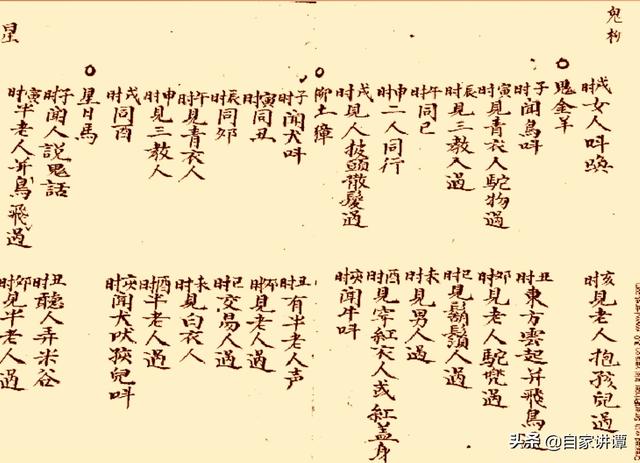 鬼柳
戌时女人叫唤
亥时見老人抱孩兒過
鬼金羊
子时聞鳥叫
丑时東方雲起并飛鳥過
寅时見青衣人駝物過
卯时見老人駝凳過
辰时見三教人過
巳时見鬍鬚人過
午时同巳
未时見男人過
申时二人同行
酉时見穿紅衣人或紅盖身
戌时見人披頭散髮過
亥时聞牛叫
柳土獐
子时聞犬叫
丑时有半老人声
寅时同丑
卯时見老人過
辰时同卯
巳时交易人過
午时見青衣人
未时見白衣人
申时見三教人
酉时半老人過
戌时同酉
亥时聞犬吠孩兒叫
星日馬
子时聞人説鬼話
丑时聽人弄米谷
寅时半老人并鳥飛過
卯时見半老人過
星
头条 @自家讲谭